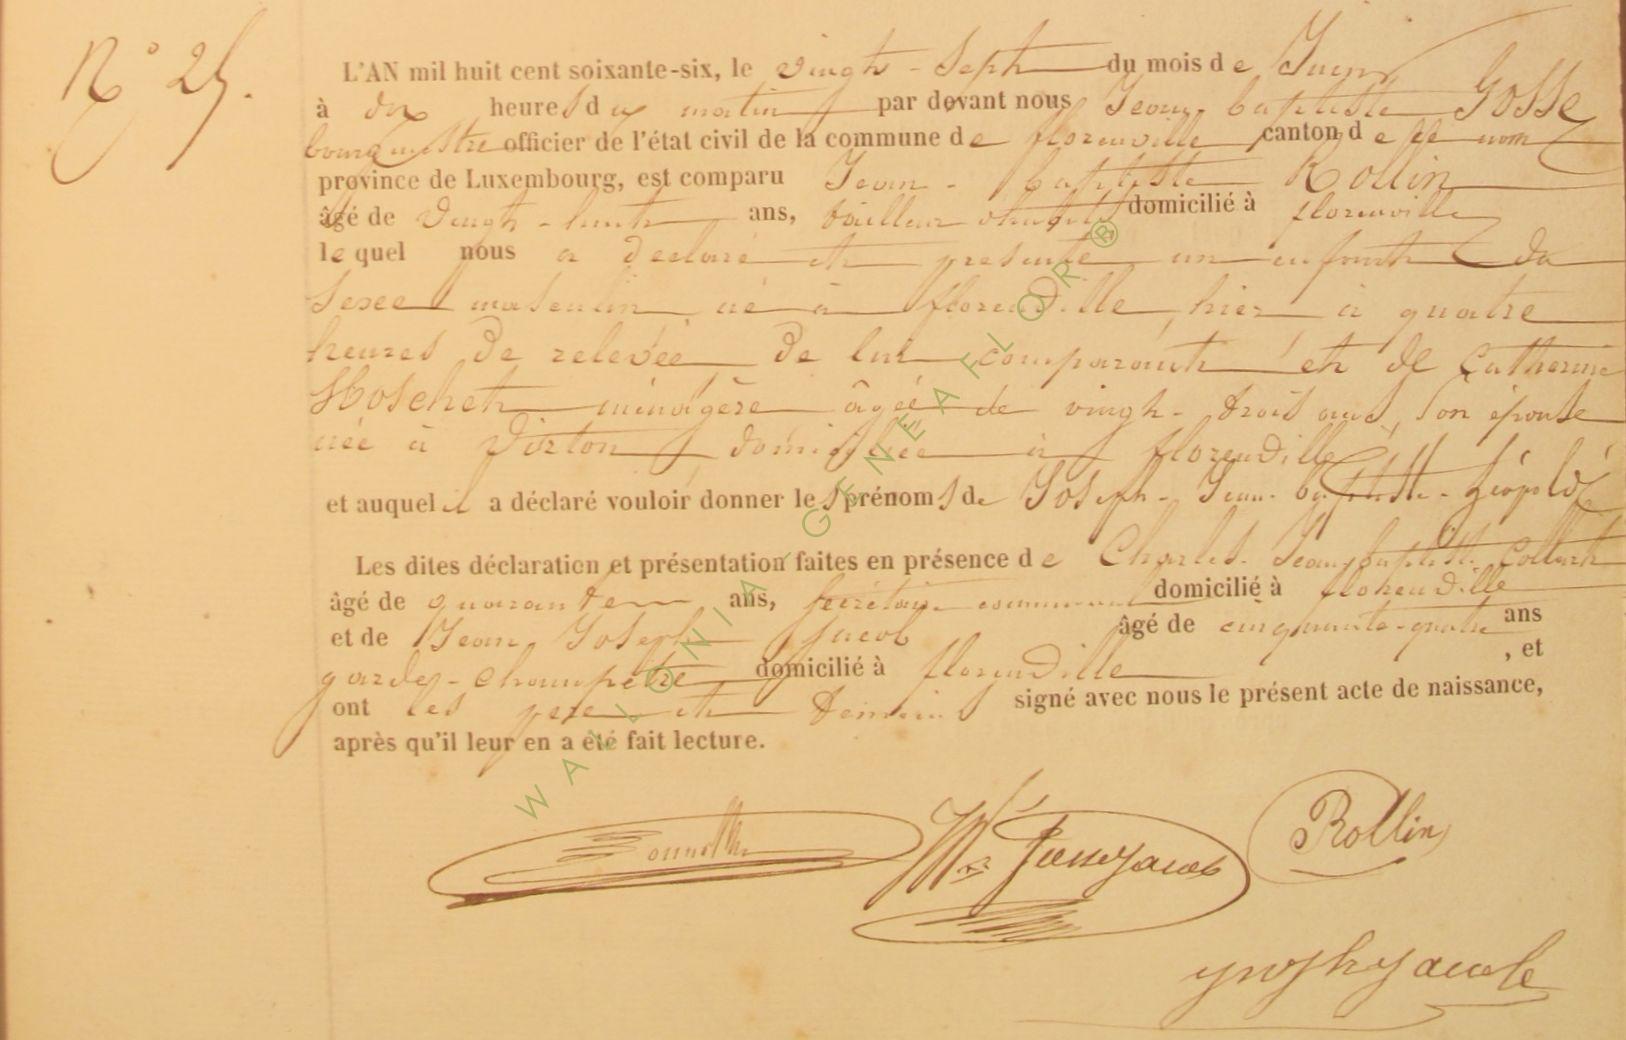 N° 25.
L'AN mil huit cent soixante-six, le vingt-sept du mois de Juin,
à dix heures du matin par devant nous Jean-baptiste Gosse
bourgmestre officier de l'état civil de la commune de florenville canton de ce nom
province de Luxembourg, est comparu Jean-baptiste Rollin
âgé de vingt-huit ans, tailleur d'habits domicilié à florenville
lequel nous a déclaré et présenté un enfant du
sexe masculin né à florenville, hier à quatre
heures de relevée de lui comparant et de Catherine
Hoschet ménagère âgée de vingt-trois ans, son épouse
née à Virton domiciliée à florenville
et auquel il a déclaré vouloir donner les prénoms de Joseph-Jean-baptiste-Léopold
Les dites déclaration et présentation faites en présence de Charles-Jean-baptiste Collart
âgé de quarante ans, secrétaire communal domicilié à florenville
et de Jean Joseph Jacob âgé de cinquante-quatre ans
garde-champêtre domicilié à florenville , et
ont les père et témoins signé avec nous le présent acte de naissance,
après qu'il leur en a été fait lecture.
Rollin
WALLONIA GENEAFLOR ®